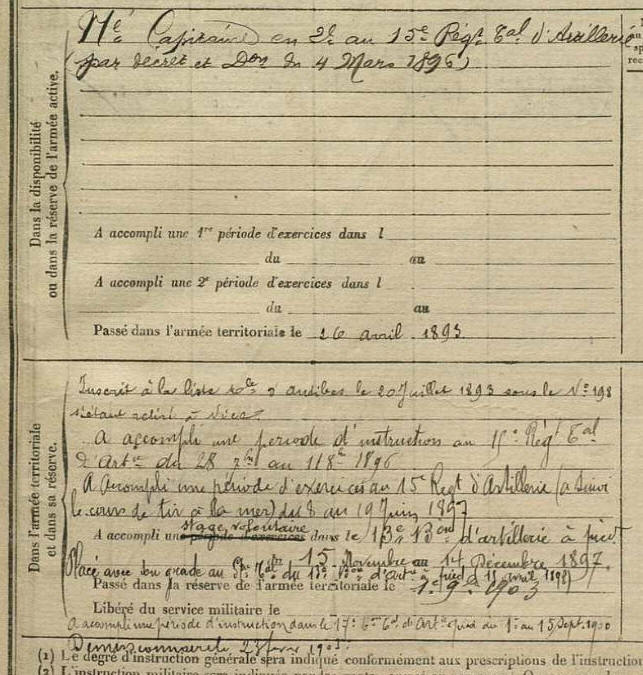 Né Capitaine en 2d au 15e Régt Tal d'Artillerie
(par décret et Don du 4 Mars 1896)
Dans la disponibilité
ou dans la réserve de l'armée active.
A accompli une 1re période d'exercices dans l
du au
A accompli une 2e période d'exercices dans l
du au
Passé dans l'armée territoriale le 16 avril 1893
Dans l'armée territoriale
et dans sa réserve.
Inscrit à la liste d'antibes le 20 Juillet 1893 sous le No 198
s'étant retiré à Nice
A accompli une période d'instruction au 15e Régt Tal
d'Artie du 28 au 1896
A Accompli une période d'exercices au 15e Regt d'Artillerie (a Suivi
le cours de tir à la mer) du 8 au 19 Juin 1897
stage volontaire
A accompli une période d'exercices dans le 13e Bon d'artillerie à pied
15 Novembre au 14 Décembre 1897.
Placé avec son grade au du 13e Bon d'Artie à pied 11 avril 1898)
Passé dans la réserve de l'armée territoriale le 1. 9. 1903
Libéré du service militaire le
A accompli une période d'instruction dans le 17e d'Artie à pied du 1er au 15 Sept. 1900
23 1903
(1) Le degré d'instruction générale sera indiqué conformément aux prescriptions de l'instruction
(2) L'instruction militaire sera indiquée